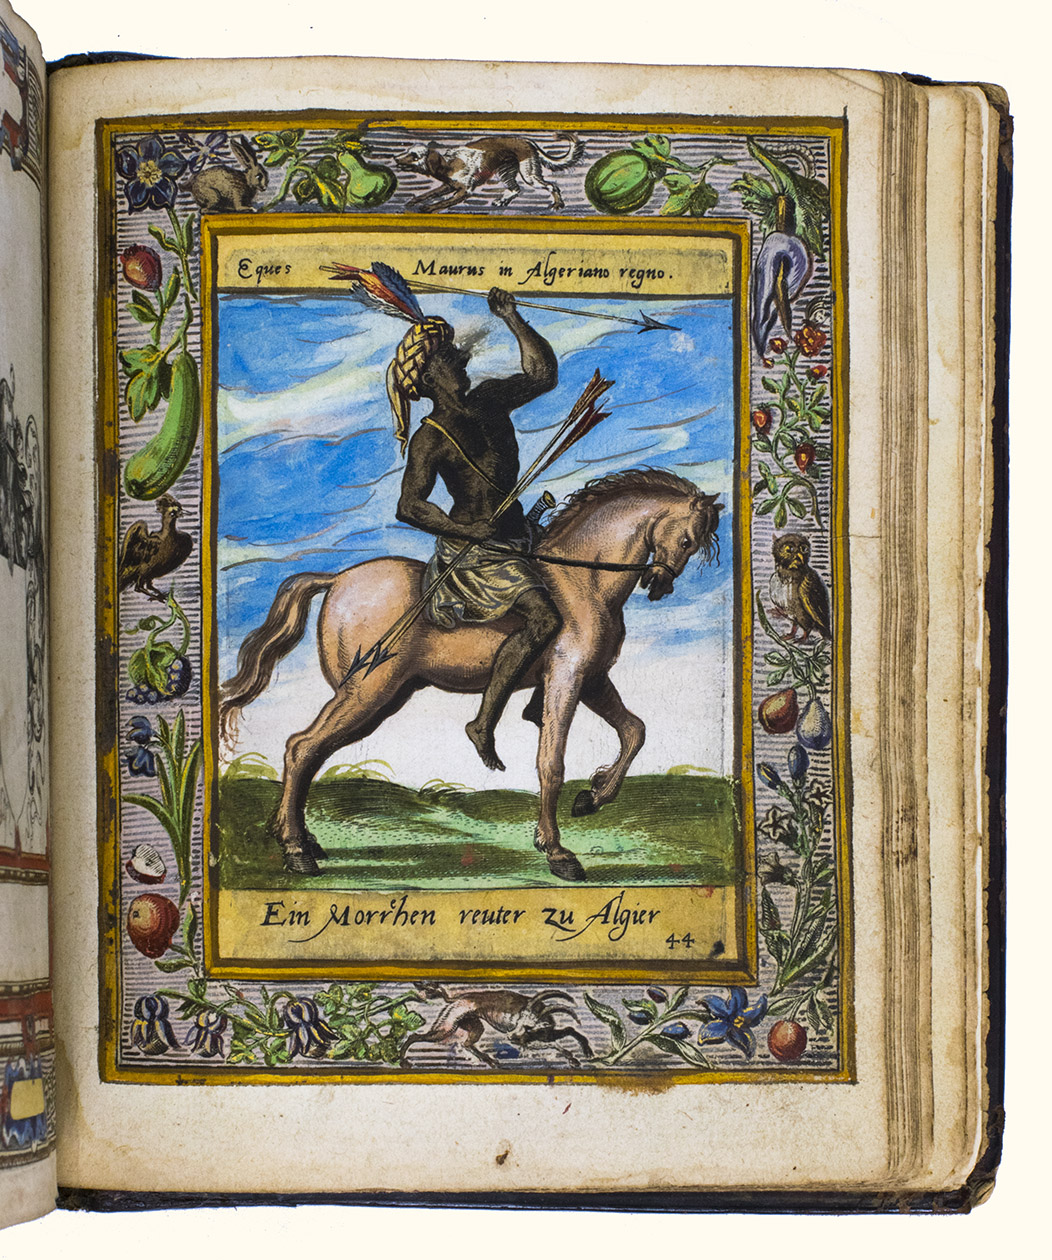 Eques Maurus in Algeriano regno.
Ein Morrͤhen reuter zu Algier
44